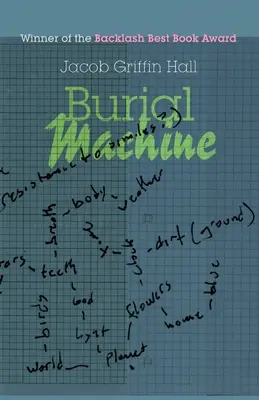 Winner of the Backlash Best Book Award
Jacob Griffin Hall
Burial
Machine
resistance to
body
weather
breath
dirt (ground)
teeth
birds
flowers
home
blue
world
planet